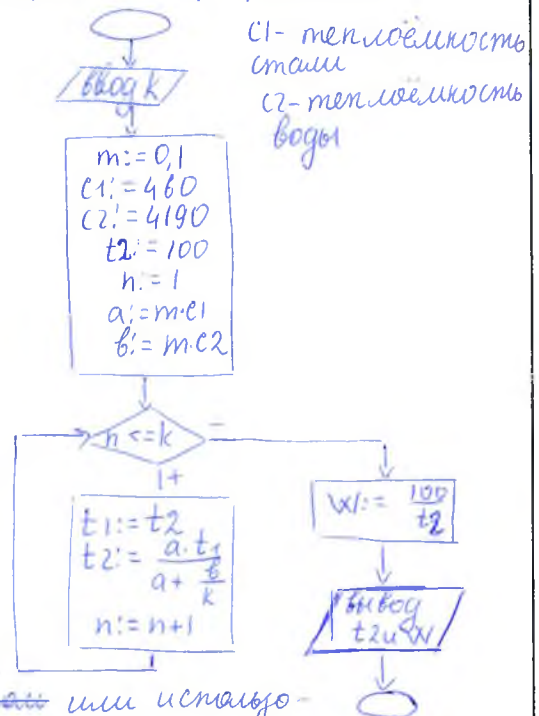 c1- теплоёмность
стали
c2- теплоёмность
воды
ввод k
m:=0,1
c1:=460
c2:=4190
t2:=100
n:=1
a:=m·c1
в:=m·c2
n<=k
-
+
t1:=t2
t2:= a·t1 / a+ в/k
n:=n+1
W:= 100/t2
вывод
t2 и W
или использо-